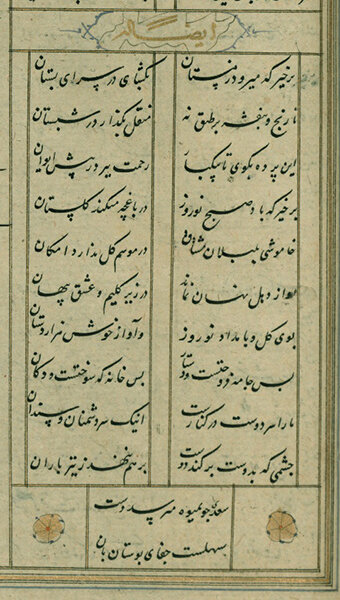 ایضاله
برخیز که میرود زمستان بگشای در سرای بستان
نارنج و بنفشه بر طبق نه منقل بگذار در شبستان
این پرده بگوی تا بیکبار زحمت ببرد ز پیش ایوان
برخیز که باد صبح نوروز در باغچه میکند گلستان
خاموشی بلبلان مشتاق در موسم گل ندارد امکان
آواز دهل نهان نماند در زیر گلیم و عشق پنهان
بوی گل و بامداد نوروز وآواز خوش هزاردستان
بس جامه فروختست و دستار بس خانه که سوختست و دکان
ما را سر دوست در کنارست اینک سر دشمنان و سندان
چشمی که بدوست برکند دوست بر هم ننهد ز تیر باران
سعدی چو بمیوه میرسد دست
سهلست جفای بوستان بان